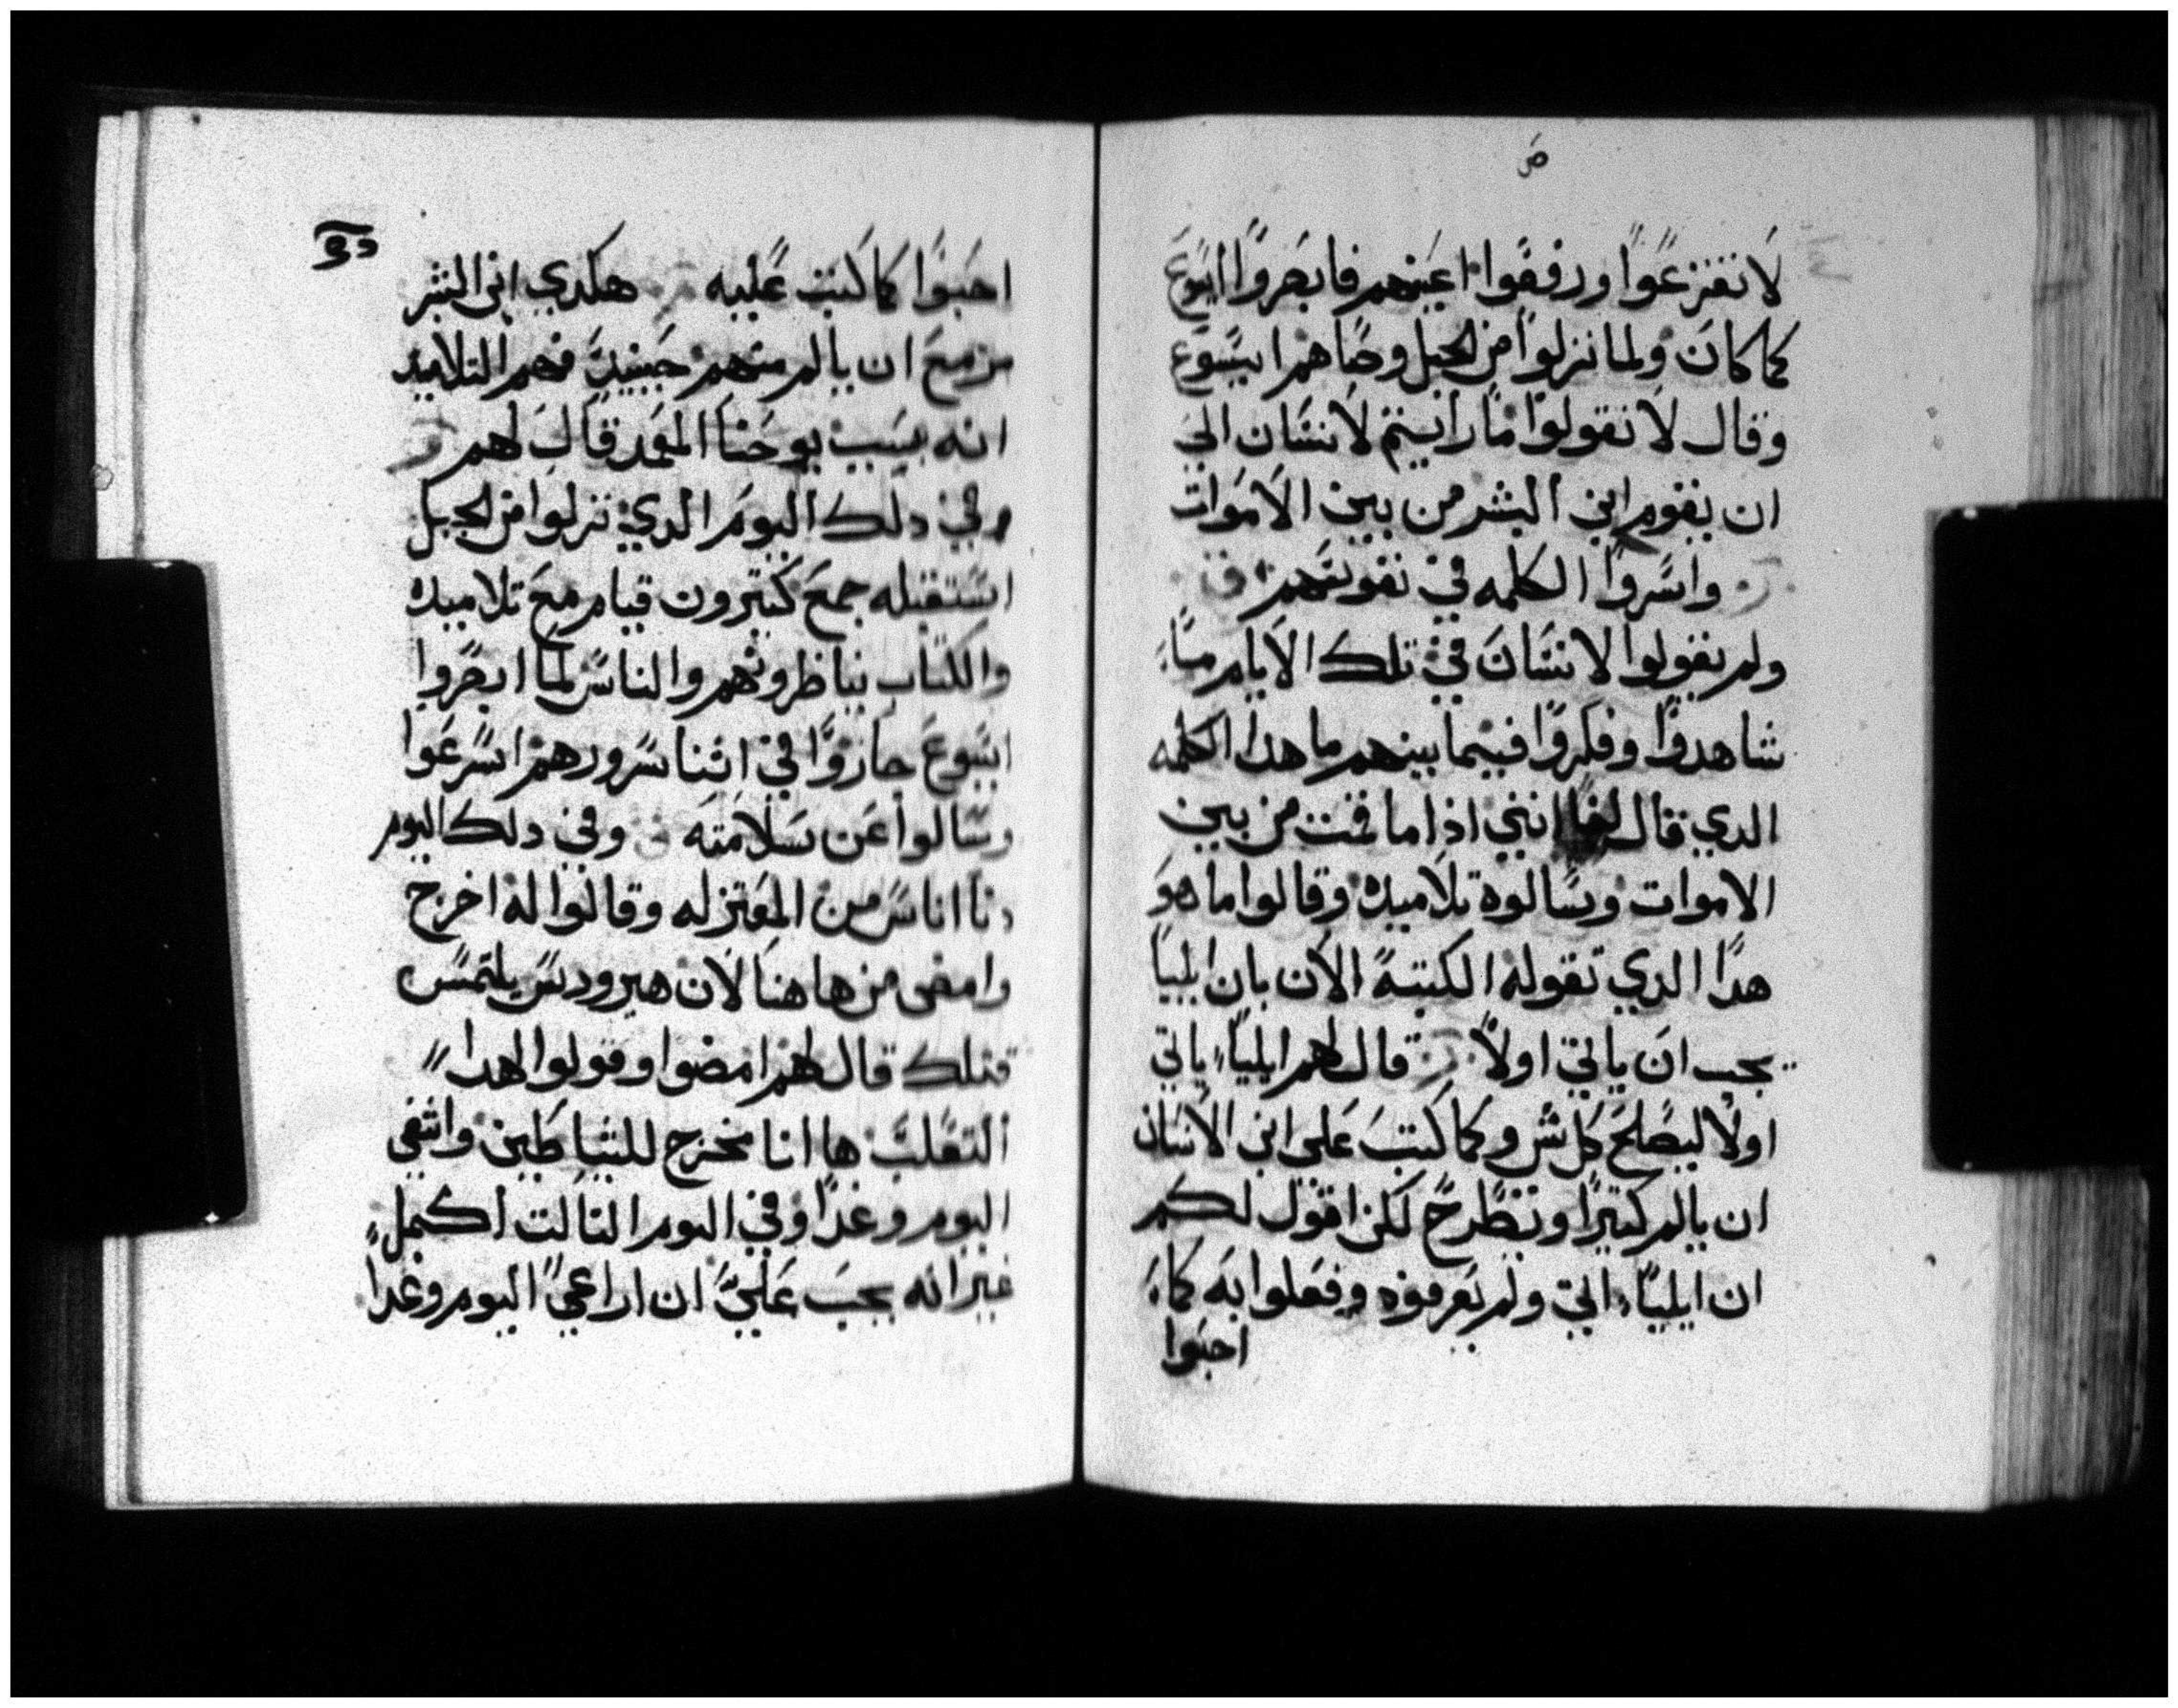 ص
لا تفزعوا ورفعوا اعينهم فابصروا ايسوع
كما كان ولما نزلوا من الجبل وصاهم ايسوع
وقال لا تقولوا ما رايتم لانسان الى
ان يقوم ابن البشر من بين الاموات
واسروا الكلمه في نفوسهم
ولم يقولوا لانسان في تلك الايام ما
شاهدوا وفكروا فيما بينهم ما هدا الكلمه
الدي قال لنا انني اذا ما قمت من بين
الاموات وسالوه تلاميده وقالوا ما هو
هدا الدي تقوله الكتبة الان بان ايليا
يجب ان ياتي اولا قال لهم ايليا ياتي
اولا ليصلح كل شي وكما كتب على ابن الانسان
ان يالم كتيرا ويطرح لكن اقول لكم
ان ايلياء اتي ولم يعرفوه وفعلوا به كما
احبوا
احبوا كما كتب عليه هكدي ابن البشر
مزمع ان يالم منهم حينيد فهم التلاميد
انه بسبب يوحنا المعمد قال لهم
وفي دلك اليوم الدي نزلوا من الجبل
استقبله جمع كتيرون قيام مع تلاميده
والكتاب يناظرونهم والناس لما ابصروا
ايسوع حاروا في اتنا سرورهم اسرعوا
وسالوا عن سلامته وفي دلك اليوم
دنا اناس من المعتزله وقالوا له اخرج
وامضى من هاهنا لان هيرودس يلتمس
قتلك قال لهم امضوا وقولوا لهدا
التعلب ها انا مخرج للشياطين واشفي
اليوم وغدا وفي اليوم التالت اكمل
غير انه يجب علي ان اراعي اليوم وغدا